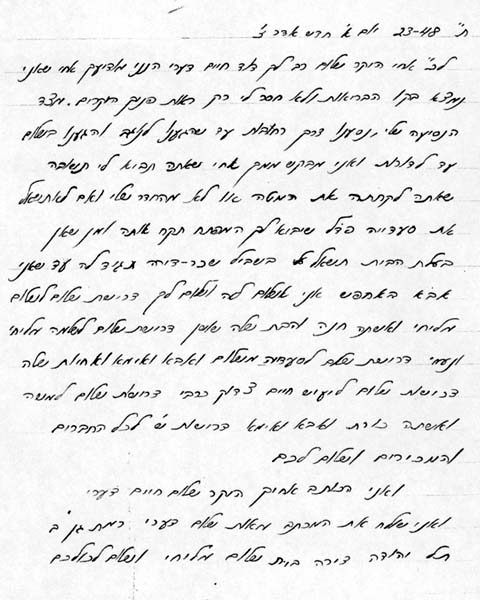 ת"א 23-48 יום א' חדש אדר ב'
לכ' אחי היקר שלום רב לך דוד חיים דערי הנני מודיעך אחי שאני
נמצא בקו הבריאות ולא חסר לי רק ראות פניך היקרים. מצד
הנסיעה שלי, נסענו דרך רחובות עד שהגענו לנגב והגענו בשלום
עד לדורות ואני מבקש ממך אחי שאתה תביא לי תשובה
שאתה לקחתה את המטה או לא מהחדר שלי ואם לא תשאל
את סעדייה שיביא לך המפתח תקח אותה ומן
בעלת הבית תשאל בשביל שכר-דירה תגיד לה עד שאני
אבא בחופש אני אשלם לה ושלום לך דרישת שלום לשלום
מליחי ואשתה חנה והבת שלה דרישת שלום לשלמה מליחי
ונעמי דרישת שלום לסעדיה משלום ואבא ואימא ואחיות שלה
דרישות שלום ליעיש חיים צדוק דרישת שלום למשה
ואשתה ואבא ואימא דרישות ש' לכל החברים
והמכירים ושלום לכם
ואני הכותב אחיך היקר שלום חיים דערי
ואני שולח את המכתב מאת שלום דערי רמת גן ב
תל יהודה דירה בית שלום מליחי ושלום לכולכם